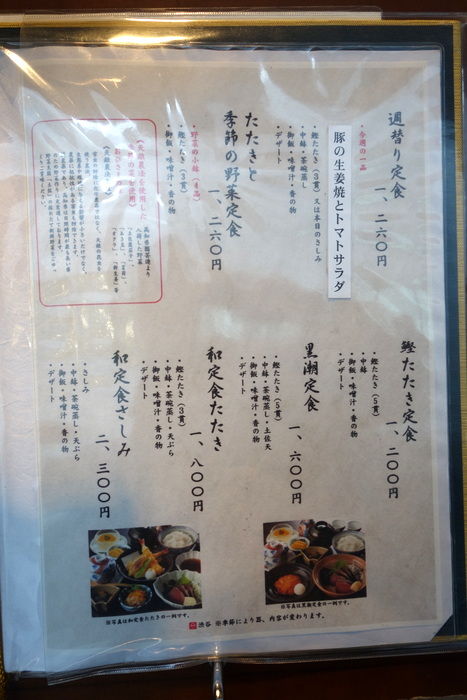 週替り定食
一、二六〇円
・今週の一品
豚の生姜焼とトマトサラダ
・鰹たたき（３貫）又は本日のさしみ
・中鉢・茶碗蒸し
・御飯・味噌汁・香の物
・デザート
たたきと
季節の野菜定食
一、二六〇円
・野菜の小鉢（４種）
・鰹たたき（３貫）
・御飯・味噌汁・香の物
鰹たたき定食
一、二〇〇円
・鰹たたき（５貫）
・中鉢・茶碗蒸し
・御飯・味噌汁・香の物
・デザート
黒潮定食
一、六〇〇円
・鰹たたき（５貫）
・中鉢・茶碗蒸し・土佐天
・御飯・味噌汁・香の物
・デザート
和定食たたき
一、八〇〇円
・鰹たたき（３貫）
・中鉢・茶碗蒸し・天ぷら
・御飯・味噌汁・香の物
・デザート
和定食さしみ
二、三〇〇円
・さしみ
・中鉢・茶碗蒸し・天ぷら
・御飯・味噌汁・香の物
・デザート
※写真は黒潮定食の一例です。
※写真は和定食たたきの一例です。
渋谷 ※季節により器、内容が変わります。